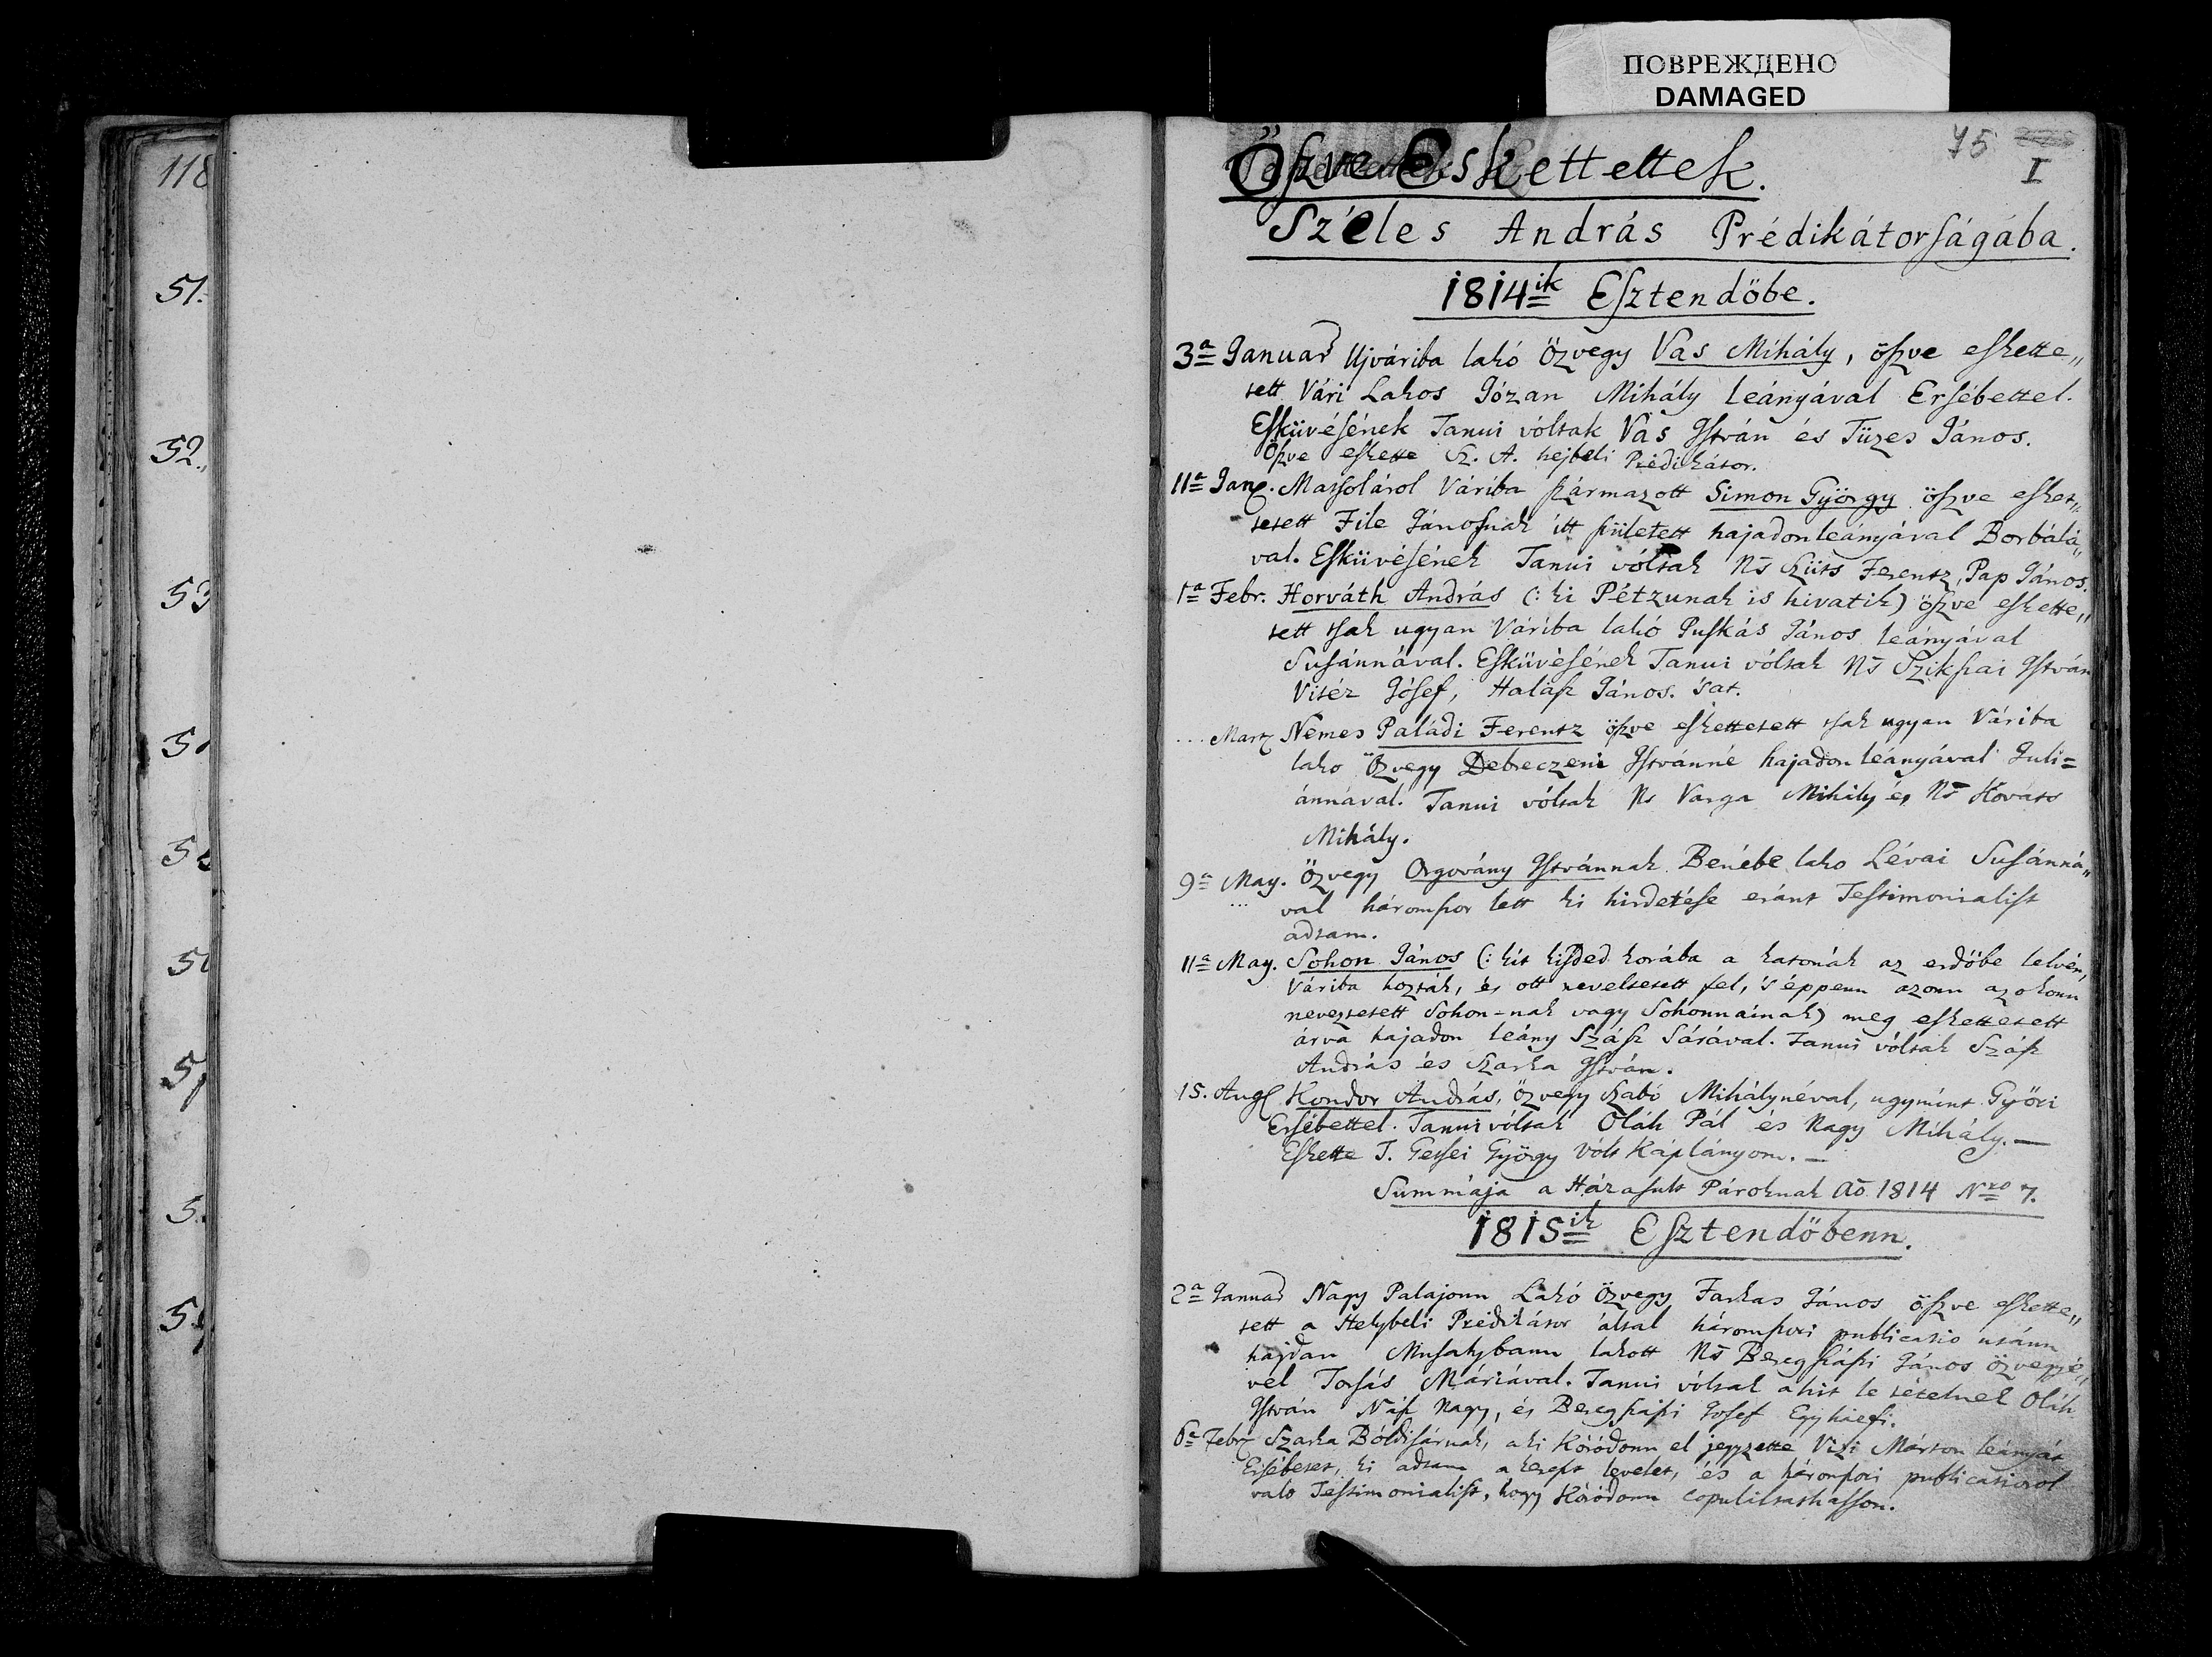 ПОВРЕЖДЕНО
DAMAGED
118
51.
52.
53
75
I
Öszve Eskettettek.
Széles András Prédikátorságába.
1814ik Esztendöbe.
3a Januar Ujváriba lakó Özvegy Vas Mihály, öszve eskette„
tett Vári Lakos Józan Mihály leányával Ersébettel.
Esküvésének Tanui vóltak Vas István és Tüzes János.
Öszve eskette Sz. A. hejbeli Prédikátor.
11a Jan. Váriba származott Simon György öszve esket„
tetett File Jánosnak itt született hajadon leányával Borbálá„
val. Esküvésének Tanui vóltak Ns Szüts Ferentz, Pap János.
1a Febr. Horváth András (: ki Pétzunak is hivatik) öszve eskette„
tett tsak ugyan Váriba lakó Puskás János leányával
Susánnával. Esküvésének Tanui vóltak Ns Szikszai István
Vitéz Jósef, Halász János. 'sat.
... Mart Nemes Paládi Ferentz öszve eskettetett tsak ugyan Váriba
lako Özvegy Debreczeni Istvánné hajadon leányával Juli=
ánnával. Tanui vóltak Ns Varga Mihály és Ns Kovats
Mihály.
9a May. Özvegy Orgovány Istvánnak Benébe lako Lévai Susánná„
val háromszor lett ki hirdetése eránt Testimonialist
adtam.
11a May. Sohon János (: kit kisded korába a katonák az erdöbe lelvén,
Váriba hozták, és ott neveltetett fel, 's éppenn azonn az okonn
neveztetett Sohon-nak vagy Sohonnainak) meg eskettetett
árva hajadon leány Szász Sárával. Tanui vóltak Szász
András és Szarka István.
15. Aug Kondor András, özvegy Szabó Mihálynéval, ugymint Györi
Ersébettel. Tanui vóltak Oláh Pál és Nagy Mihály. —
Eskette T. Getsei György vólt Káplányom. —
Summája a Házasult Pároknak Ao 1814 Nro 7.
1815ik Esztendöbenn.
2a Januar Nagy Palajonn Lakó özvegy Farkas János öszve eskette„
tett a Helybeli Prédikátor által háromszori publicatio utánn
hajdan lakott Ns Beregszászi János özvegyé„
vel Tortás Máriával. Tanui vóltak a hit le tételnek Oláh
István Nagy, és Beregszászi Josef Egyházfi.
6a Febr Szarka Bóldisárnak, aki Kóródonn el jegyzette Vizi Márton leányát
Ersébetet, ki adtam a levelet, és a háromszori publicatioról
valo Testimonialist, hogy Kóródonn copuliltathasson.